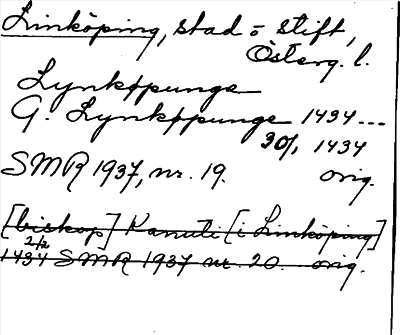 Linköping, stad o stift,
Österg. l.
Lynkøpunge
G. Lynkøpunge 1434 ---
30/1 1434
SMR 1937, nr. 19. orig.
[biskop] Kanuti [i Linköping]
2/2
1434 SMR 1937 nr. 20. orig.